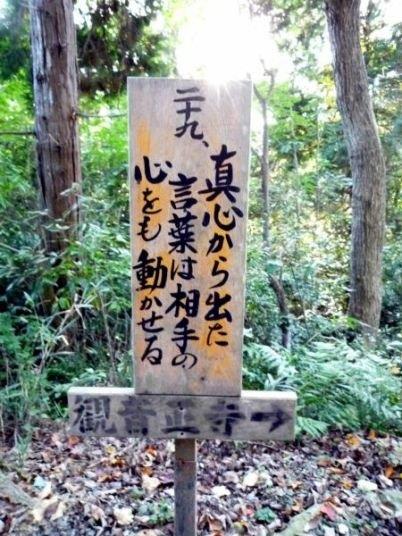 二十九、
真心から出た
言葉は相手の
心をも動かせる
観音正寺→